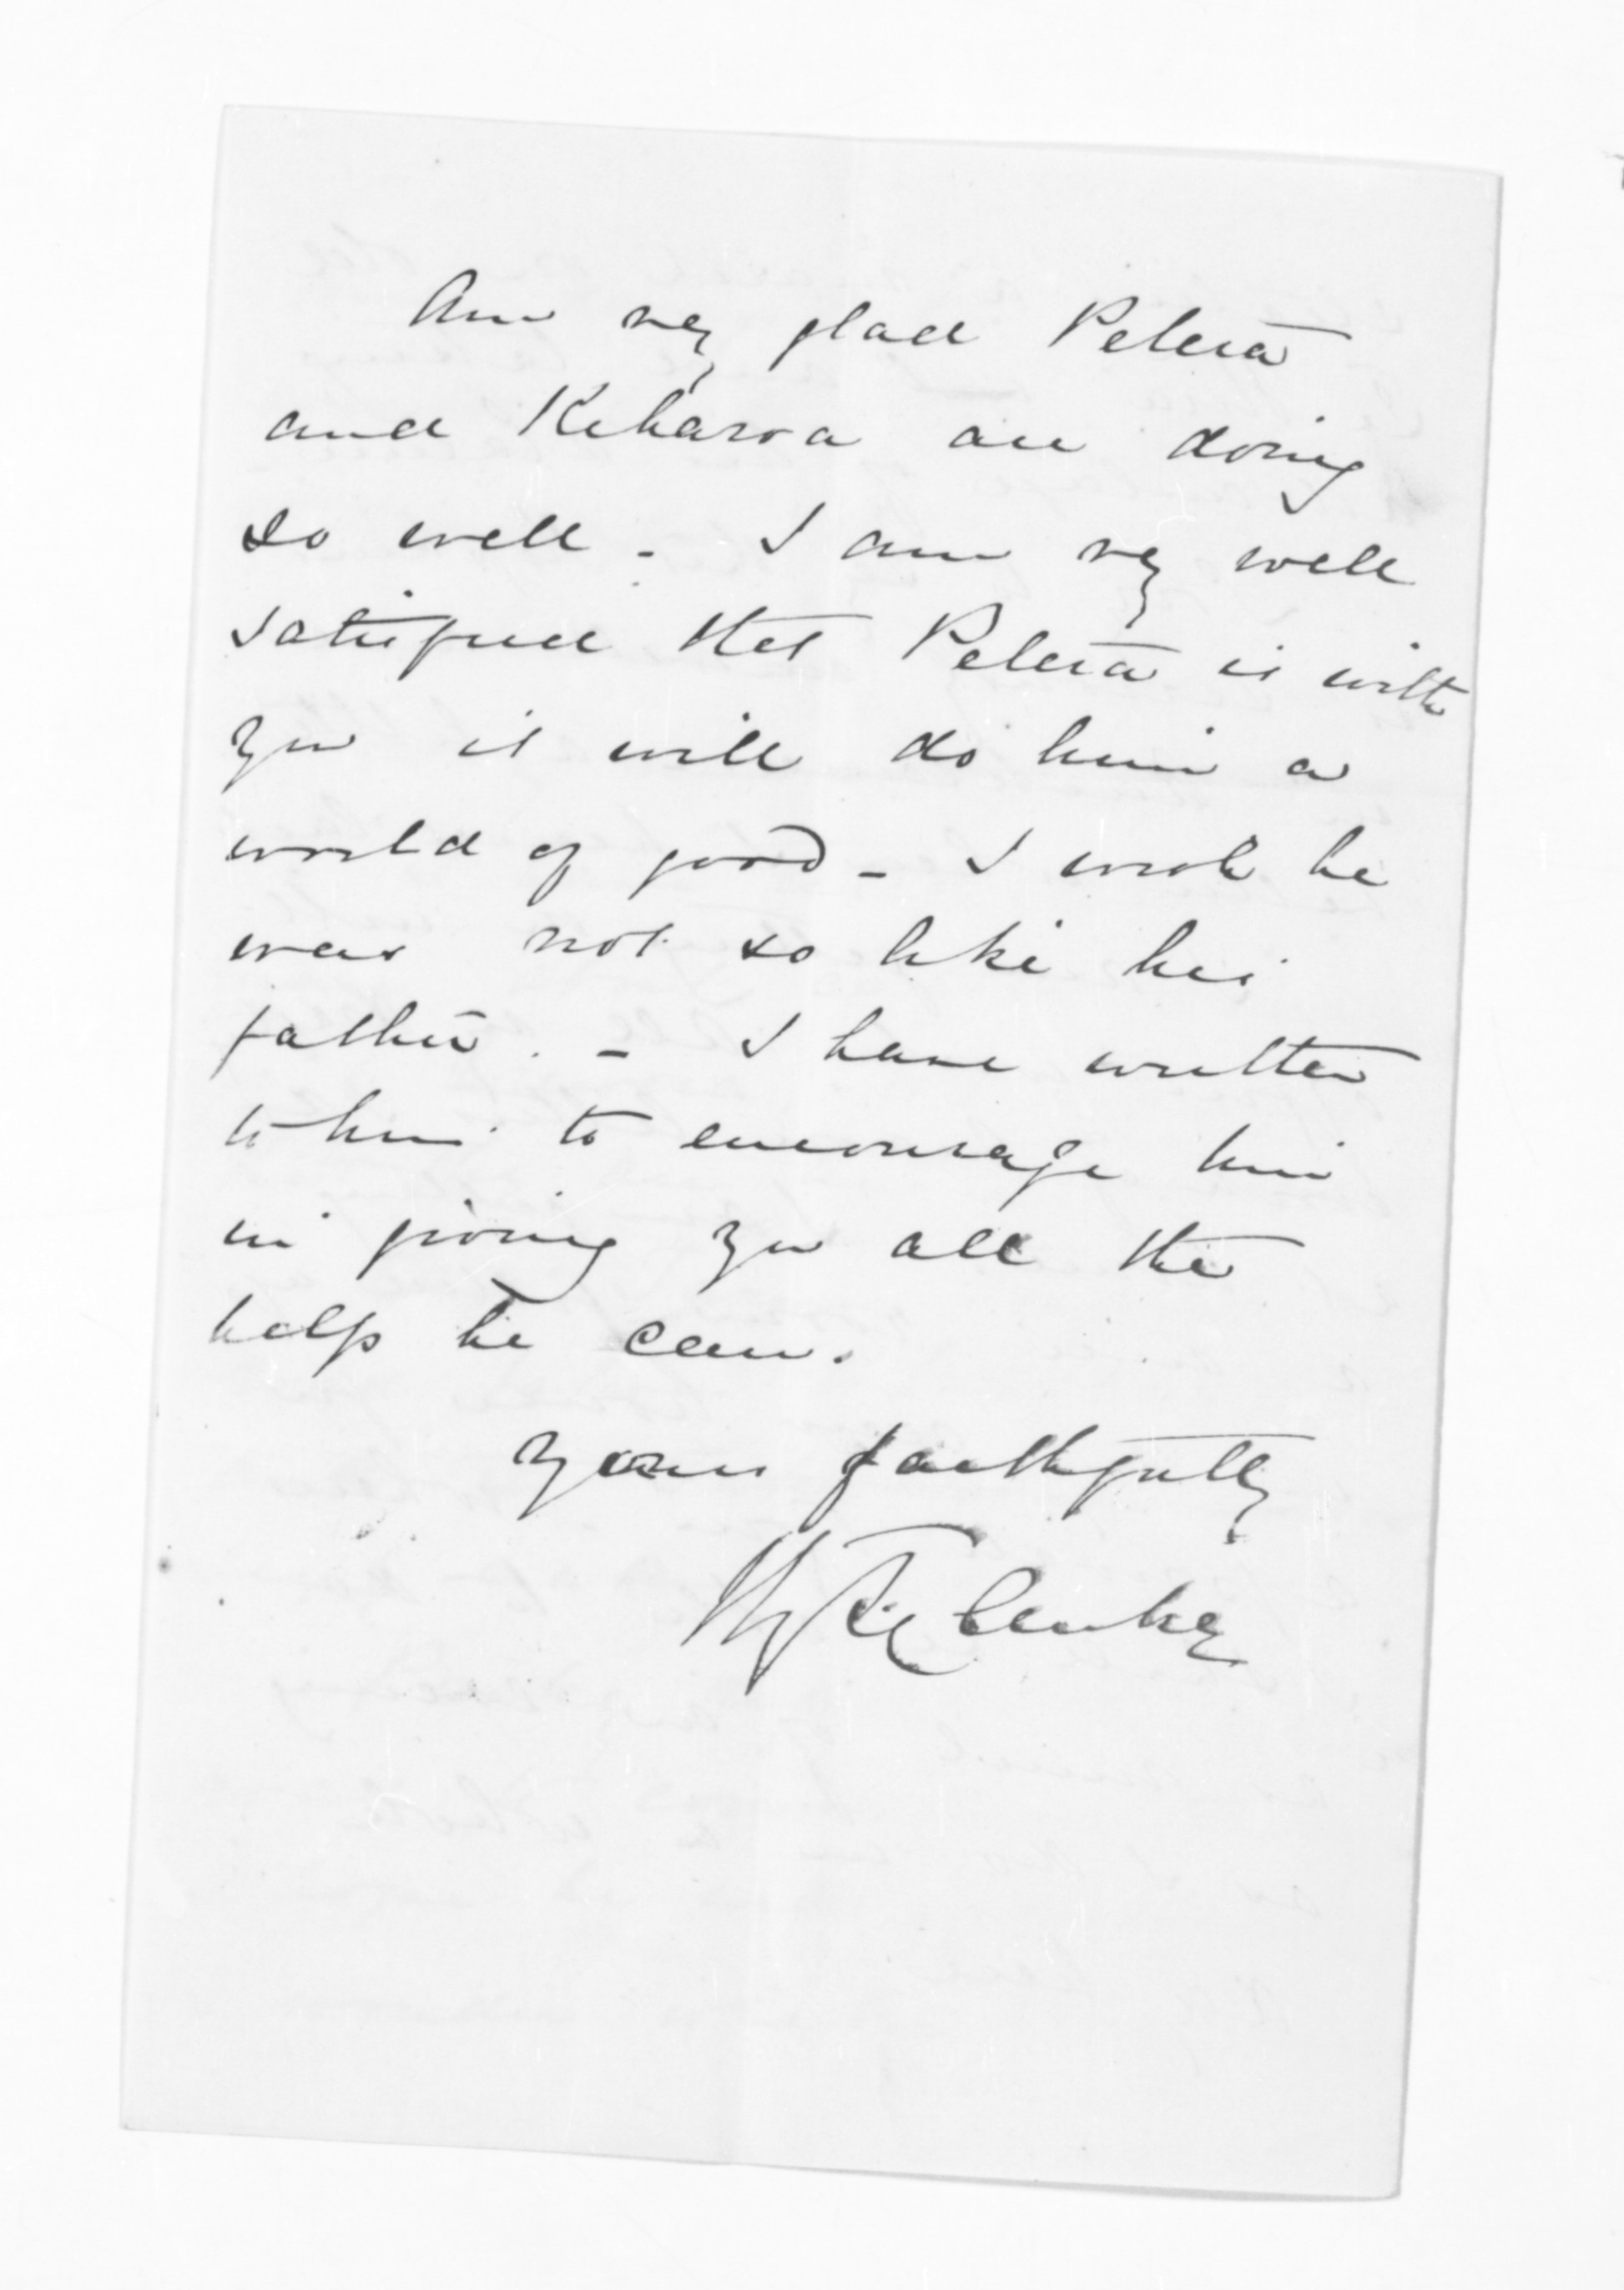 Am very glad Peleta
and Keharoa are doing
so well - I am very well
satisfied that Peleta is with
you it will do him a
world of good - I wish he
was not so like his
father. - I have written
to him to encourage him
in giving you all the
help he can.
Yours faithfully